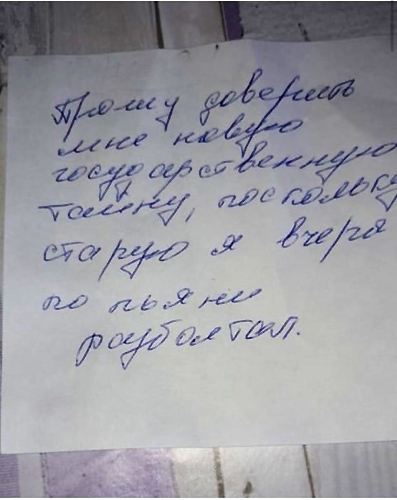 Прошу доверить
мне новую
государственную
тайну, поскольку
старую я вчера
по пьяни
разболтал.